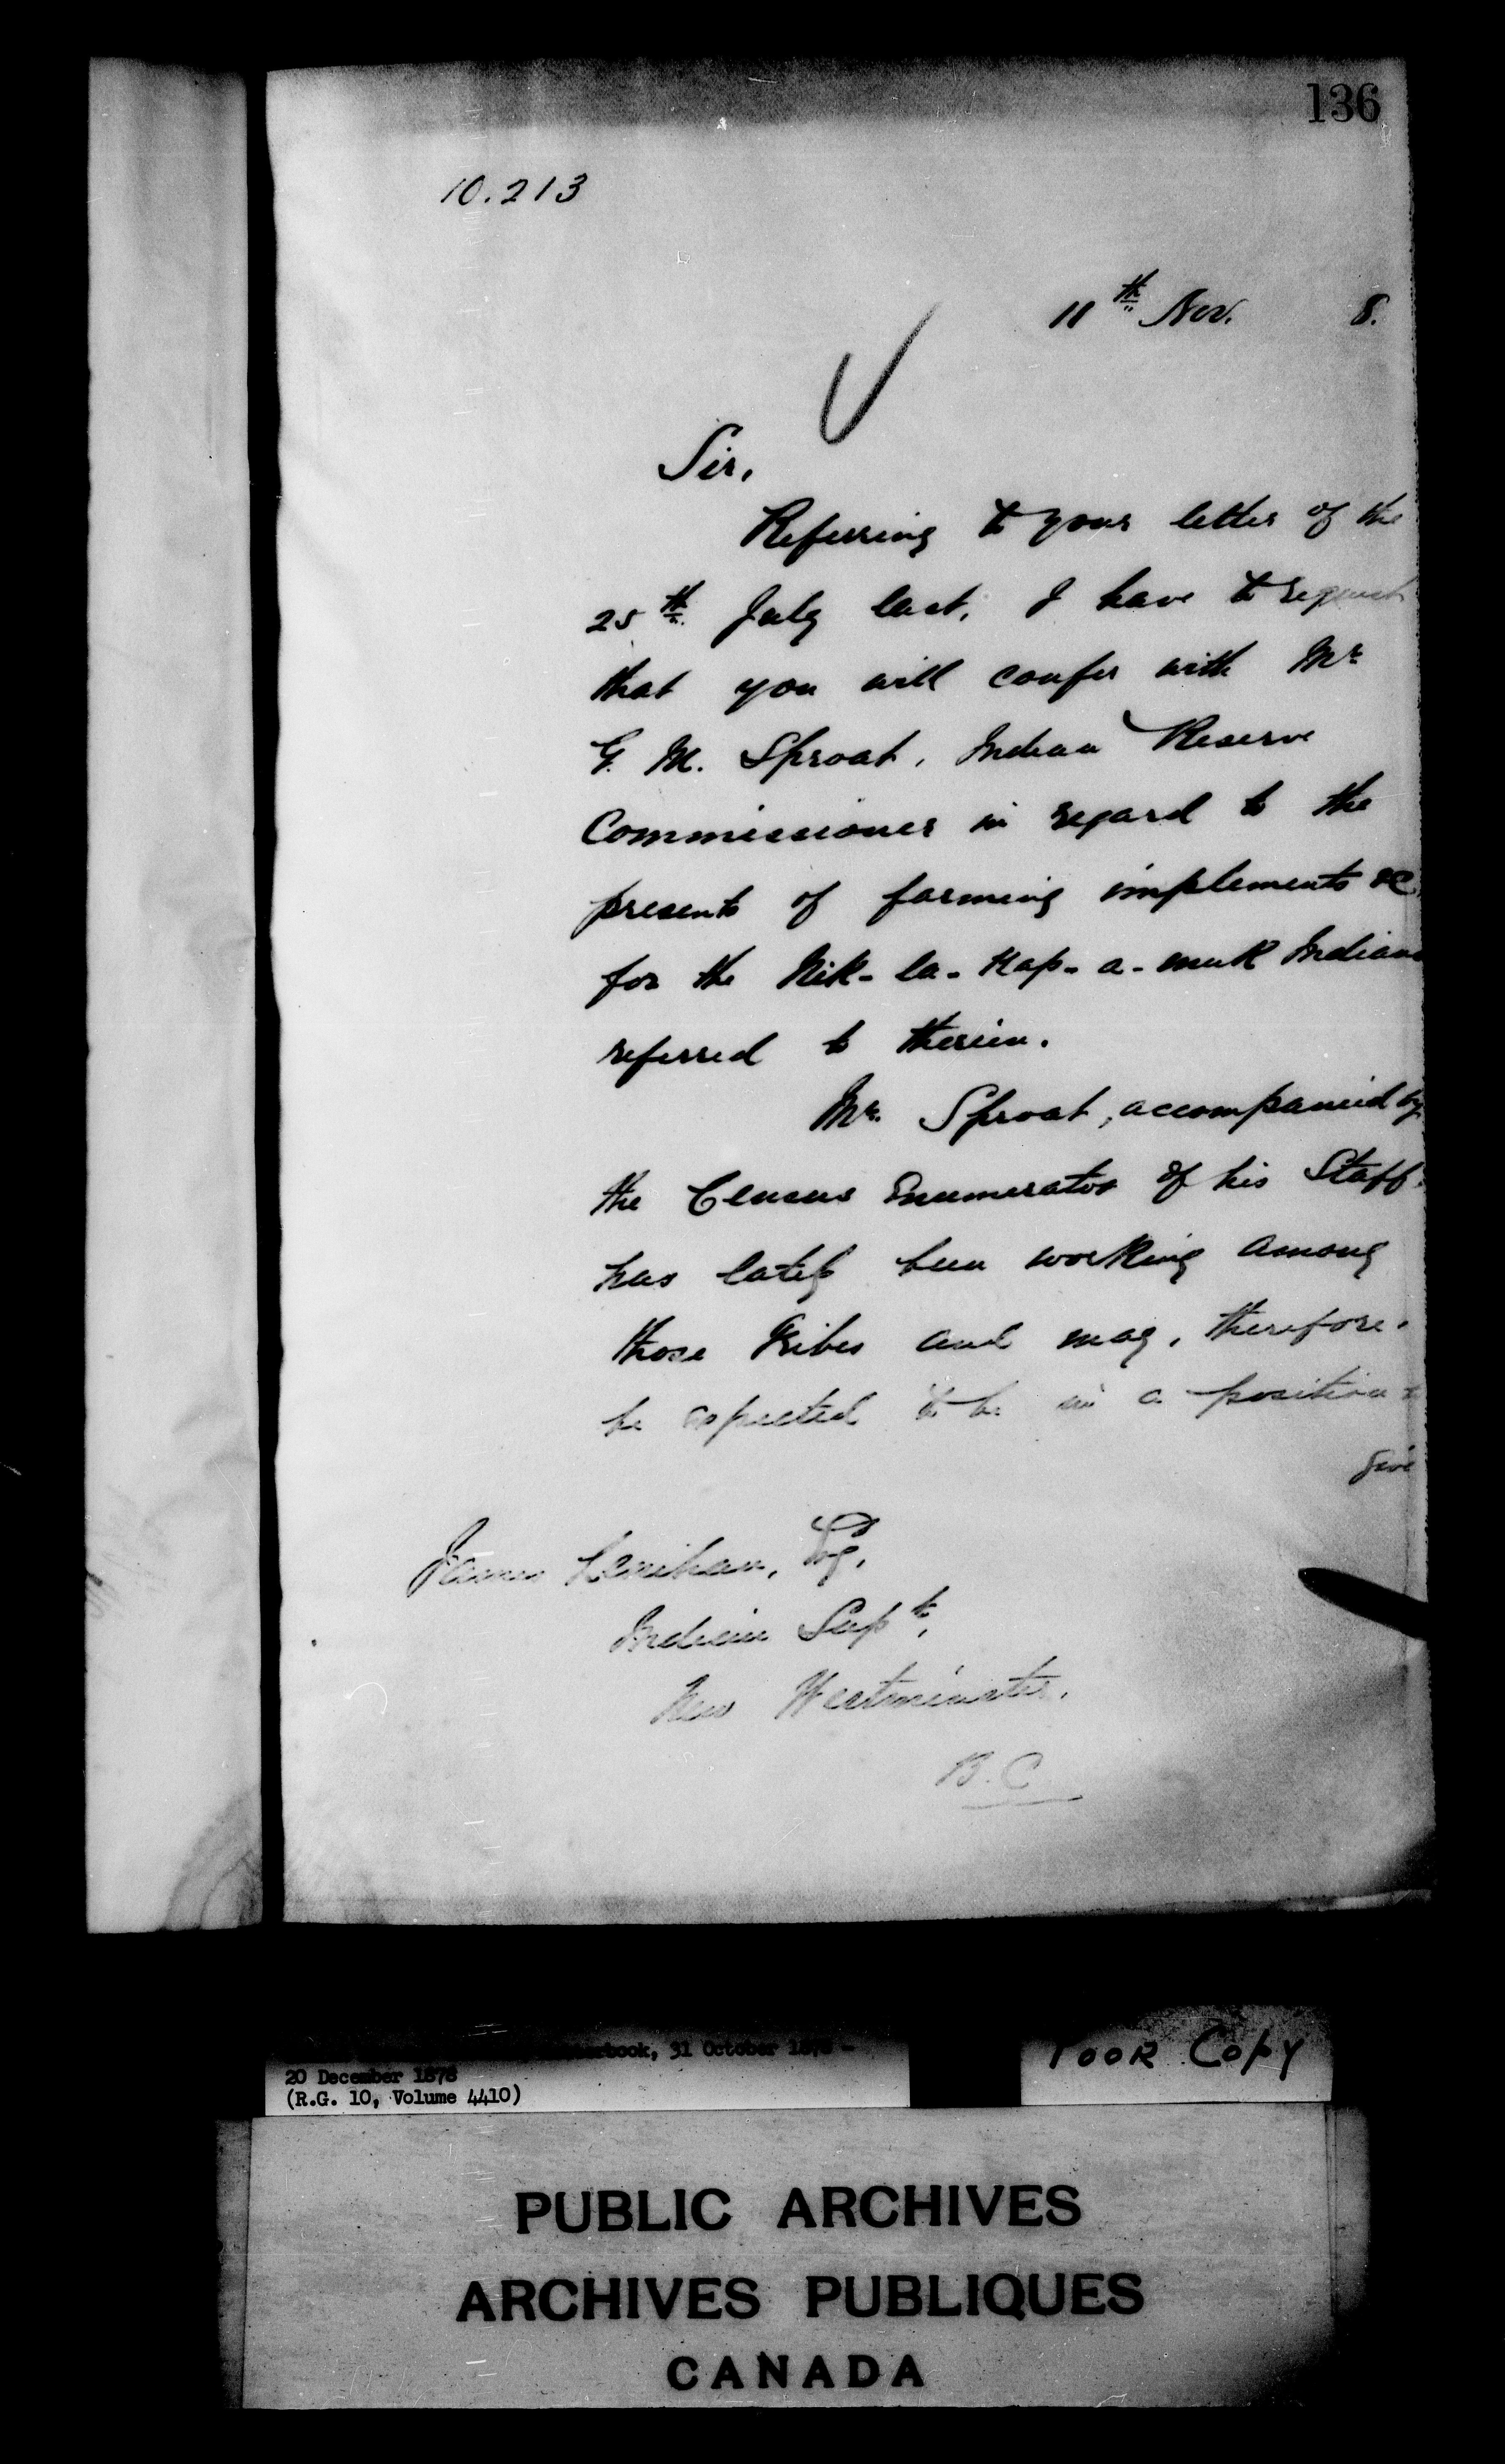 136
10.213
11th Nov. 8.
Sir,
Referring to your letter of the
25th July last, I have to request
that you will confer with Mr
G. M. Sproat, Indian Reserve
Commissioner in regard to the
presents of farming implements &c
for the Nik-la-Kap-a-muk Indians
referred to therein.
Mr. Sproat, accompanied by
the Census Enumerator of his Staff,
has lately been working among
those Tribes and may, therefore,
be expected to be in a position to
give
James Lenihan, Esq,
Indian Supt,
New Westminster,
B.C
31 October 1878 -
20 December 1878
(R.G. 10, Volume 4410)
Poor Copy
PUBLIC ARCHIVES
ARCHIVES PUBLIQUES
CANADA